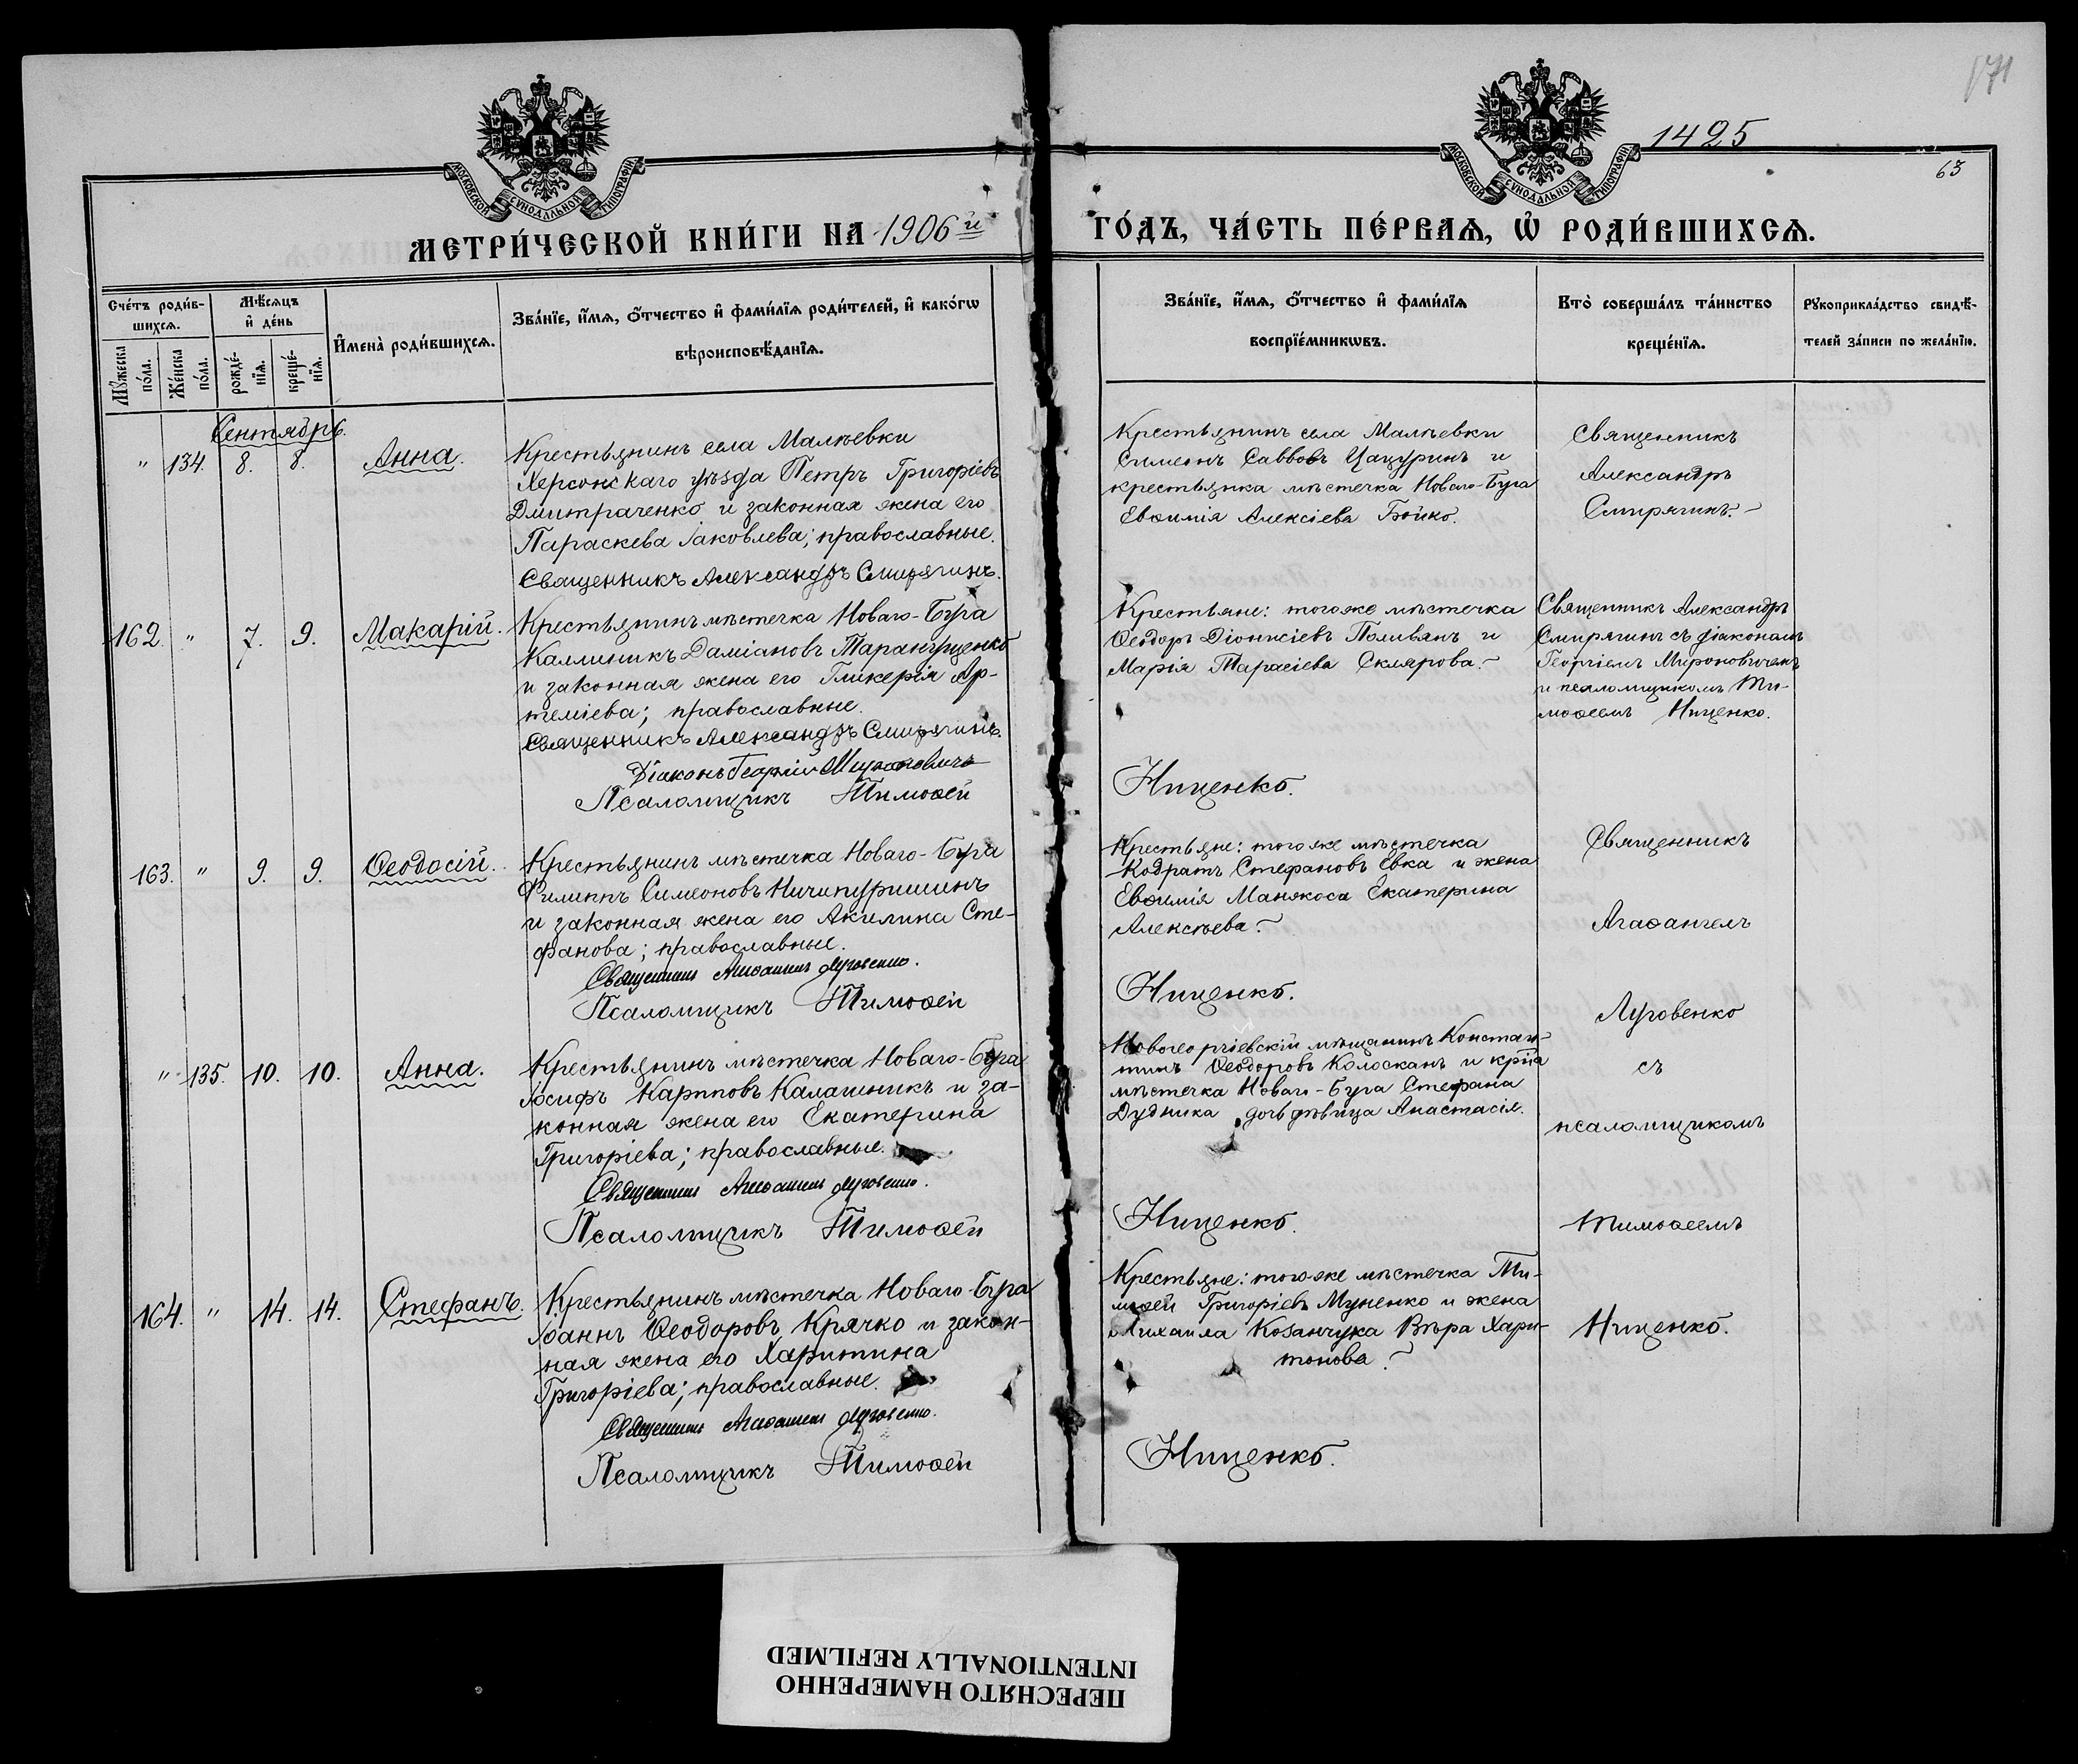 171
1425
63
МОСКОВСКОЙ СУНОДАЛЬНОЙ ТИПОГРАФІИ
МОСКОВСКОЙ СУНОДАЛЬНОЙ ТИПОГРАФІИ
МЕТРИ́ЧЕСКОЙ КНИ́ГИ НА 1906й
ГО́ДЪ, ЧА́СТЬ ПЕ́РВАѦ, Ѡ҆ РОДИ́ВШИХСѦ.
Сче́тъ роди́в-
шихсѧ.
Мꙋ́жеска
по́ла.
Же́нска
по́ла.
Мѣ́сѧцъ
и҆ де́нь
рожде́-
нїѧ.
креще́-
нїѧ.
И҆мена̀ роди́вшихсѧ.
Зва́нїе, и҆́мѧ, ѻ҆́тчество и҆ фами́лїѧ роди́телей, и҆ како́гѡ
вѣроисповѣ́данїѧ.
Зва́нїе, и҆́мѧ, ѻ҆́тчество и҆ фами́лїѧ
воспрїе́мникѡвъ.
Кто̀ соверша́лъ та́инство
креще́нїѧ.
Рꙋкоприкла́дство свидѣ́-
телей за́писи по жела́нїю.
Сентябрь.
" 134. 8. 8. Анна.
Крестьянинъ села Малѣевки
Херсонскаго уѣзда Петръ Григоріевъ
Дмитраченко и законная жена его
Параскева Іаковлева; православные.
Священникъ Александръ Смирягинъ.
Крестьянинъ села Малѣевки
Симеонъ Саввовъ Цацуринъ и
крестьянка мѣстечка Новаго-Буга
Евѳимія Алексіева Бойко.
Священникъ
Александръ
Смирягинъ.
162. " 7. 9. Макарій.
Крестьянинъ мѣстечка Новаго-Буга
Каллиникъ Даміановъ Таранущенко
и законная жена его Гликерія Ар-
теміева; православные.
Священникъ Александръ Смирягинъ.
Діаконъ Георгій Мироновичъ
Псаломщикъ Тимоѳей
Крестьяне: того же мѣстечка
Ѳеодоръ Діонисіевъ Поливанъ и
Марія Тарасіева Склярова.
Ниценко.
Священникъ Александръ
Смирягинъ съ діакономъ
Георгіемъ Мироновичемъ
и псаломщикомъ Ти-
моѳеемъ Ниценко.
163. " 9. 9. Ѳеодосій.
Крестьянинъ мѣстечка Новаго-Буга
Филиппъ Симеоновъ Ничипуришинъ
и законная жена его Акилина Сте-
фанова; православные.
Священникъ Агаѳангелъ Луговенко.
Псаломщикъ Тимоѳей
Крестьяне: того же мѣстечка
Кодратъ Стефановъ Евка и жена
Евѳимія Манякоса Екатерина
Алексѣева.
Ниценко.
Священникъ
Агаѳангелъ
Луговенко
съ
псаломщикомъ
Тимоѳеемъ
Ниценко.
" 135. 10. 10. Анна.
Крестьянинъ мѣстечка Новаго-Буга
Іосифъ Карповъ Калашникъ и за-
конная жена его Екатерина
Григоріева; православные.
Священникъ Агаѳангелъ Луговенко.
Псаломщикъ Тимоѳей
Новогеоргіевскій мѣщанинъ Констан-
тинъ Ѳеодоровъ Колосканъ и кр-на
мѣстечка Новаго-Буга Стефана
Дудника дочь дѣвица Анастасія.
Ниценко.
164. " 14. 14. Стефанъ.
Крестьянинъ мѣстечка Новаго-Буга
Іоаннъ Ѳеодоровъ Крячко и закон-
ная жена его Харитина
Григоріева; православные.
Священникъ Агаѳангелъ Луговенко.
Псаломщикъ Тимоѳей
Крестьяне: того же мѣстечка Ти-
моѳей Григоріевъ Муненко и жена
Михаила Козанчука Вѣра Хари-
тонова.
Ниценко.
ПЕРЕСНЯТО НАМЕРЕННО
INTENTIONALLY REFILMED